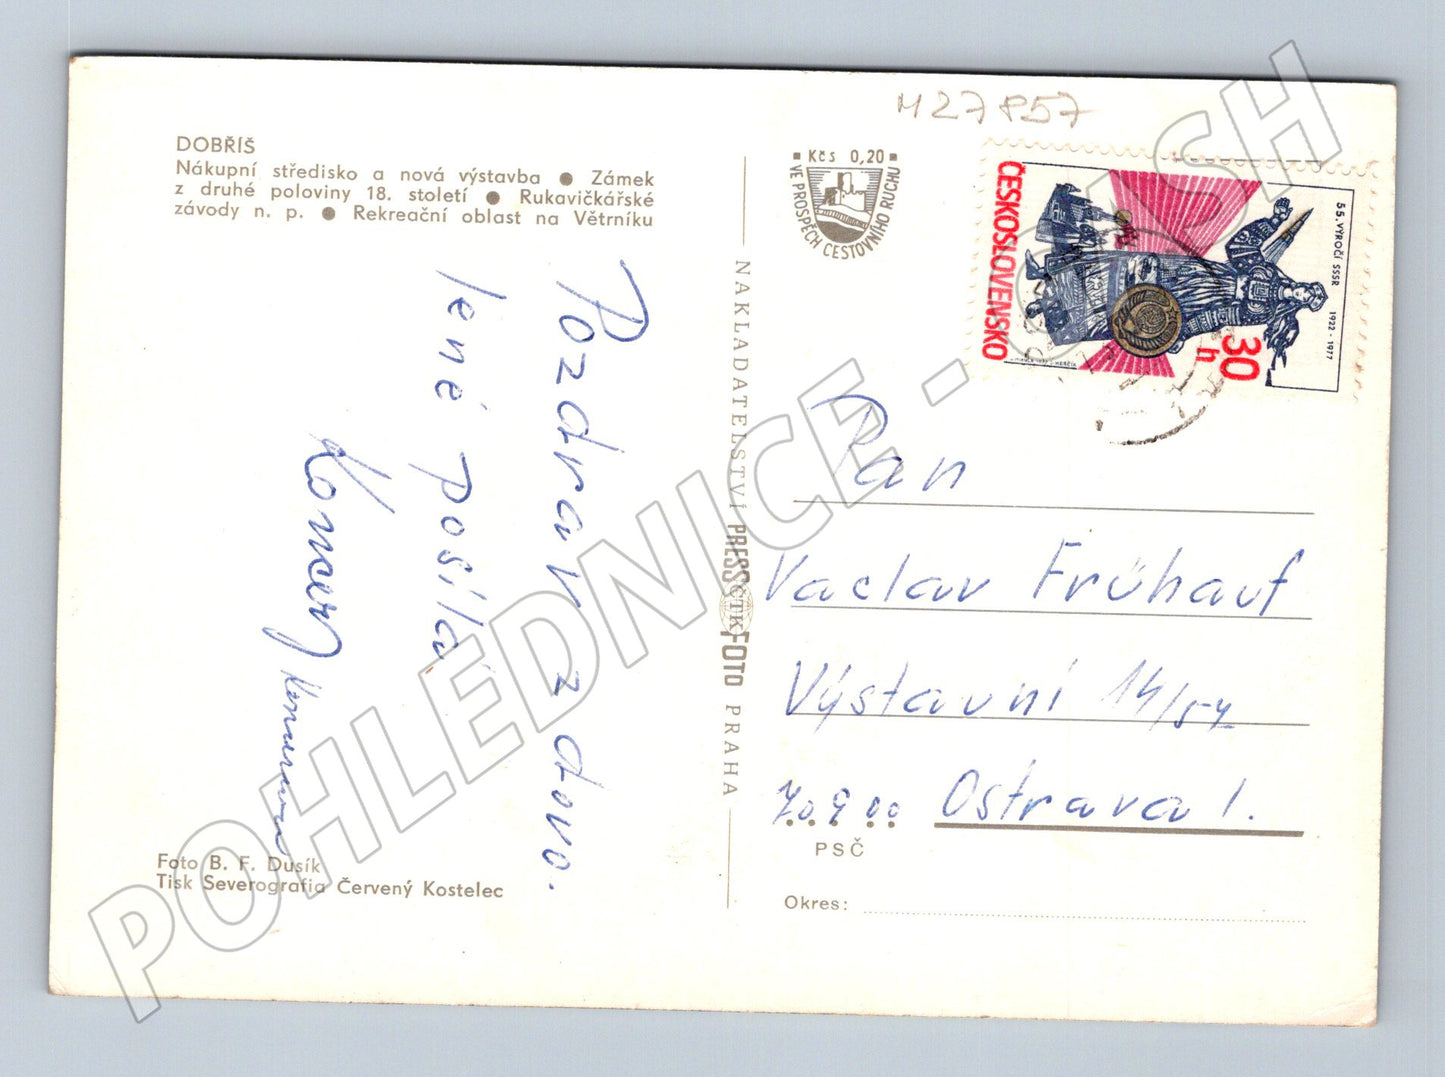 M27857
DOBŘÍŠ
Nákupní středisko a nová výstavba ● Zámek
z druhé poloviny 18. století ● Rukavičkářské
závody n. p. ● Rekreační oblast na Větrníku
Kčs 0,20
VE PROSPĚCH CESTOVNÍHO RUCHU
ČESKOSLOVENSKO
55. VÝROČÍ SSSR
1922 - 1977
30
h
Pozdrav z dovo.
lené posílá
NAKLADATELSTVÍ PRESSFOTO PRAHA
ČTK
Pan
Vaclav Frühauf
Výstavní 14/54
709 00 Ostrava 1.
PSČ
Okres:
Foto B. F. Dusík
Tisk Severografia Červený Kostelec
POHLEDNICE - CASH